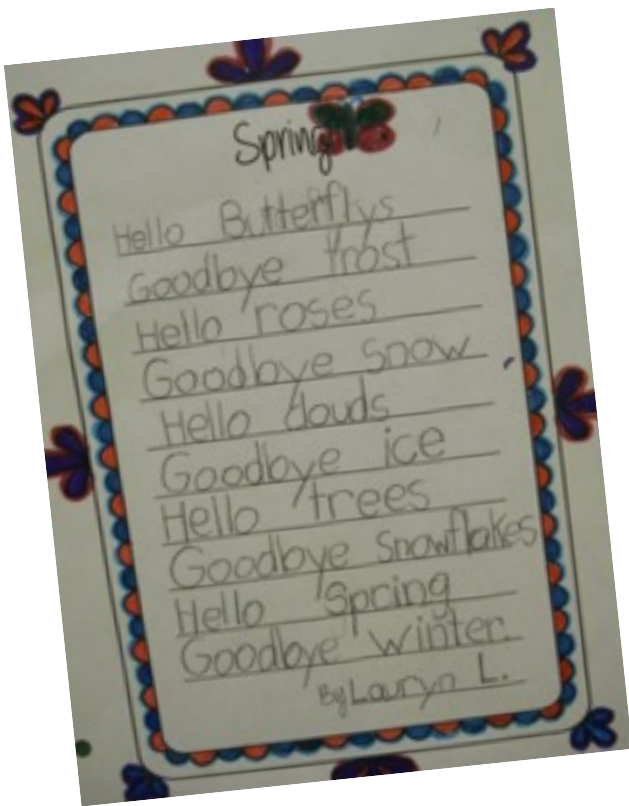 Spring
Hello Butterflys
Goodbye frost
Hello roses
Goodbye snow
Hello clouds
Goodbye ice
Hello trees
Goodbye snowflakes
Hello Spring
Goodbye winter.
By Lauryn L.